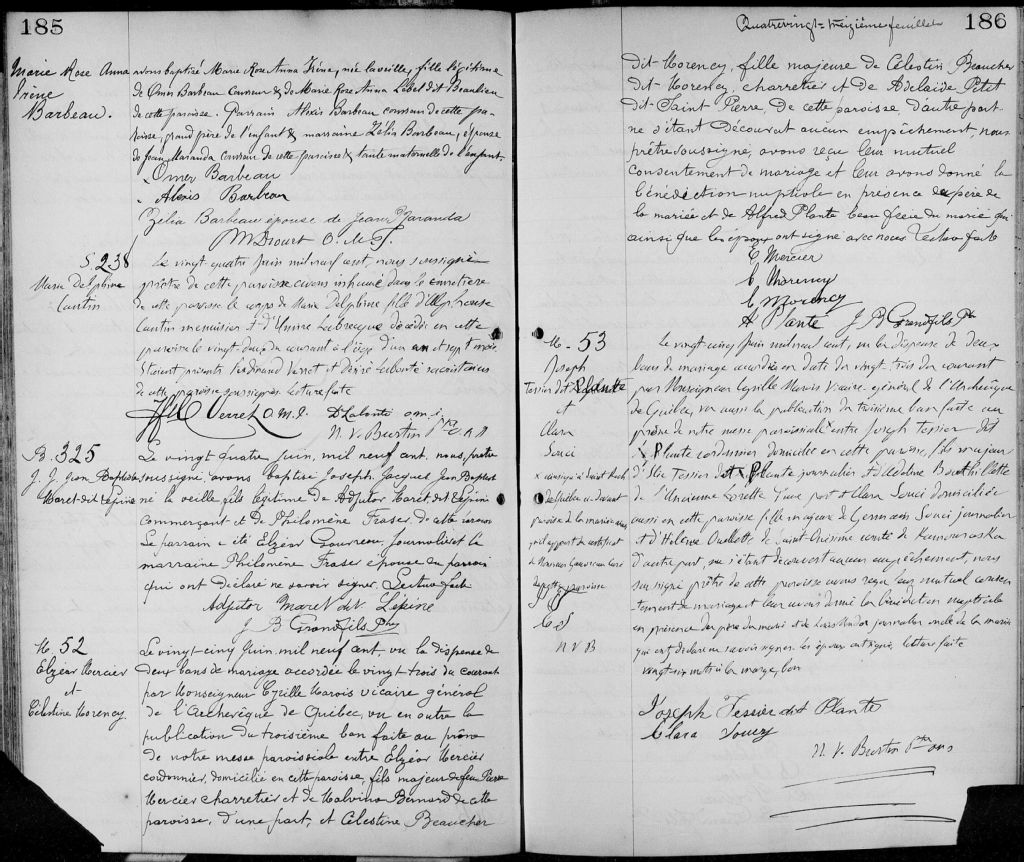 185
Marie Rose Anna
Irène
Barbeau.
avons baptisé Marie Rose Anna Irène, née la veille, fille légitime
de Omer Barbeau corroyeur & de Marie Rose Anna Label dit Beaulieu
de cette paroisse. Parrain Alexis Barbeau corroyeur de cette pa-
roisse, grand père de l'enfant & marraine Zélia Barbeau, épouse
de Jean Maranda corroyeur de cette paroisse & tante maternelle de l'enfant.
Omer Barbeau
Alexis Barbeau
Zélia Barbeau épouse de Jean Maranda
M Drouet O. M. I.
S 238
Marie Delphine
Cantin
Le vingt quatre juin mil neuf cent, nous soussigné
prêtre de cette paroisse avons inhumé dans le cimetière
de cette paroisse le corps de Marie Delphine fille d'Alphonse
Cantin menuisier et d'Labrecque décédée en cette
paroisse le vingt deux du courant à l'âge d'un an et sept mois.
Etaient présents Ferdinand Verret et Désiré Lalonté sacristains
de cette paroisse soussignés Lecture faite
Verret O M I. D Lalonté o m i
N. V. Burtin Ptre O M I
B. 325
J. J. Jean Baptiste
Maret dit Lépine
Le vingt quatre juin, mil neuf cent, nous, prêtre
soussigné, avons baptisé Joseph Jacques Jean Baptiste
né la veille fils légitime de Adjutor Maret dit Lépine
commerçant et de Philomène Fraser de cette paroisse
Le parrain a été Elzéar Gouvreau, journalier et la
marraine Philomène Fraser épouse du parrain
qui ont déclaré ne savoir signer, Lecture faite
Adjutor Maret dit Lépine
J B Grandfils Ptre
M. 52
Elzéar Mercier
et
Célestine Morency.
Le vingt-cinq Juin, mil neuf cent, vu la dispense de
deux bans de mariage accordée le vingt-trois du courant
par Monseigneur Cyrille Marois vicaire général
de l'Archevêque de Québec, vu en outre la
publication du troisième ban faite au prône
de notre messe paroissiale entre Elzéar Mercier
cordonnier, domicilié en cette paroisse, fils majeur de feu Pierre
Mercier charretier et de Malvina Bernard de cette
paroisse, d'une part, et Célestine Beaucher
Quatrevingt-treizième feuillet
186
dit-Morency, fille majeure de Célestin Beaucher
dit-Morency, charretier et de Adelaïde Petit
dit-Saint Pierre, de cette paroisse d'autre part
ne s'étant découvert aucun empêchement, nous
prêtre soussigné, avons reçu leur mutuel
consentement de mariage et leur avons donné la
bénédiction nuptiale en présence du père de
la mariée et de Alfred Plante beau frère du marié qui
ainsi que les époux ont signé avec nous Lecture faite
E Mercier
C Morency
C Morency
A Plante J B Grandfils Ptre
M. 53
Joseph
Tessier dit Plante
et
Clara
Souci
x aussi à Saint Roch
de Québec ci-devant
paroisse de la mariée
de Monsieur Gauvreau Curé
de cette paroisse
C S
N V B
Le vingt cinq Juin mil neuf cent, vu la dispense de deux
bans de mariage accordée en date du vingt trois du courant
par Monseigneur Cyrille Marois Vicaire général de l'Archevêque
de Québec, vu aussi la publication du troisième ban faite au
prône de notre messe paroissiale x entre Joseph Tessier dit
Plante cordonnier domicilié en cette paroisse, fils majeur
d' Tessier dit Plante journalier et d'Adeline Bouthillette
de l'Ancienne Lorette d'une part et Clara Souci domiciliée
aussi en cette paroisse fille majeure de Germain Souci journalier
et d'Hélène Ouellette de Saint Onésime comté de Kamouraska
d'autre part, ne s'étant découvert aucun empêchement, nous
soussigné prêtre de cette paroisse avons reçu leur mutuel consen-
tement de mariage et leur avons donné la bénédiction nuptiale
en présence du père du marié et de journalier oncle de la mariée
qui ont déclaré ne savoir signer. Les époux ont signé, lecture faite
vingt-six mots à la marge, bon
Joseph Tessier dit Plante
Clara Soucy
N. V. Burtin Ptre omi